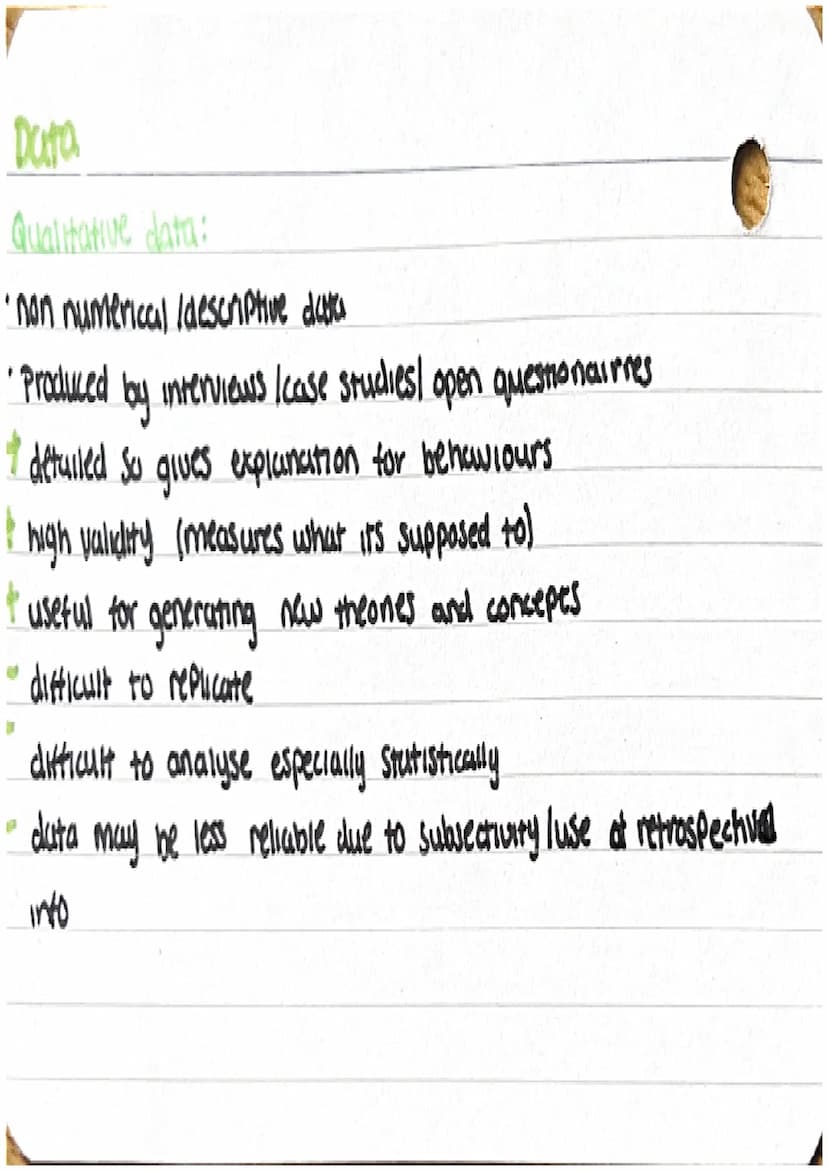 Data
Qualitative data:
· non numerical / descriptive data
· Produced by interviews / case studies / open questionairres
+ detailed so gives explanation for behaviours
+ high validity (measures what it's supposed to)
+ useful for generating new theories and concepts
- difficult to replicate
-
difficult to analyse especially statistically
- data may be less reliable due to subjectivity / use of retrospective
info